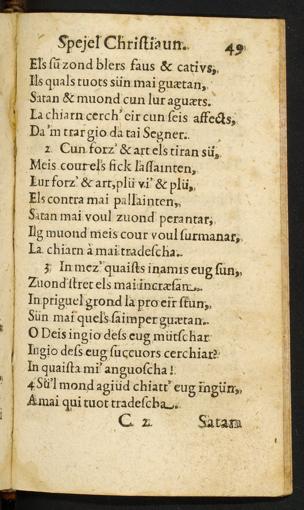 Spejel Christiaun. 49
Els sũ zond blers faus & cativs,
Ils quals tuots sün mai guætan,
Satan & muond cun lur aguæts.
La chiarn cerch' eir cun seis affects,
Da 'm trar gio da tai Segner.
2. Cun forz' & art els tiran sü,
Meis cour els fick lassainten,
Lur forz' & art, plü vi' & plü,
Els contra mai pallainten,
Satan mai voul zuond perantar,
Ilg muond meis cour voul surmanar,
La chiarn à mai tradescha.
3. In mez' quaists inamis eug sun,
Zuond stret els mai incræsan.
In priguel grond la pro eir stun,
Sün mai quels saimper guætan.
O Deis ingio dess eug mütschar
Ingio dess eug succuors cerchiar?
In quaista mi' anguoscha!
4 Sü'l mond agiüd chiatt' eug ingün,
A mai qui tuot tradescha.
C 2. Satan